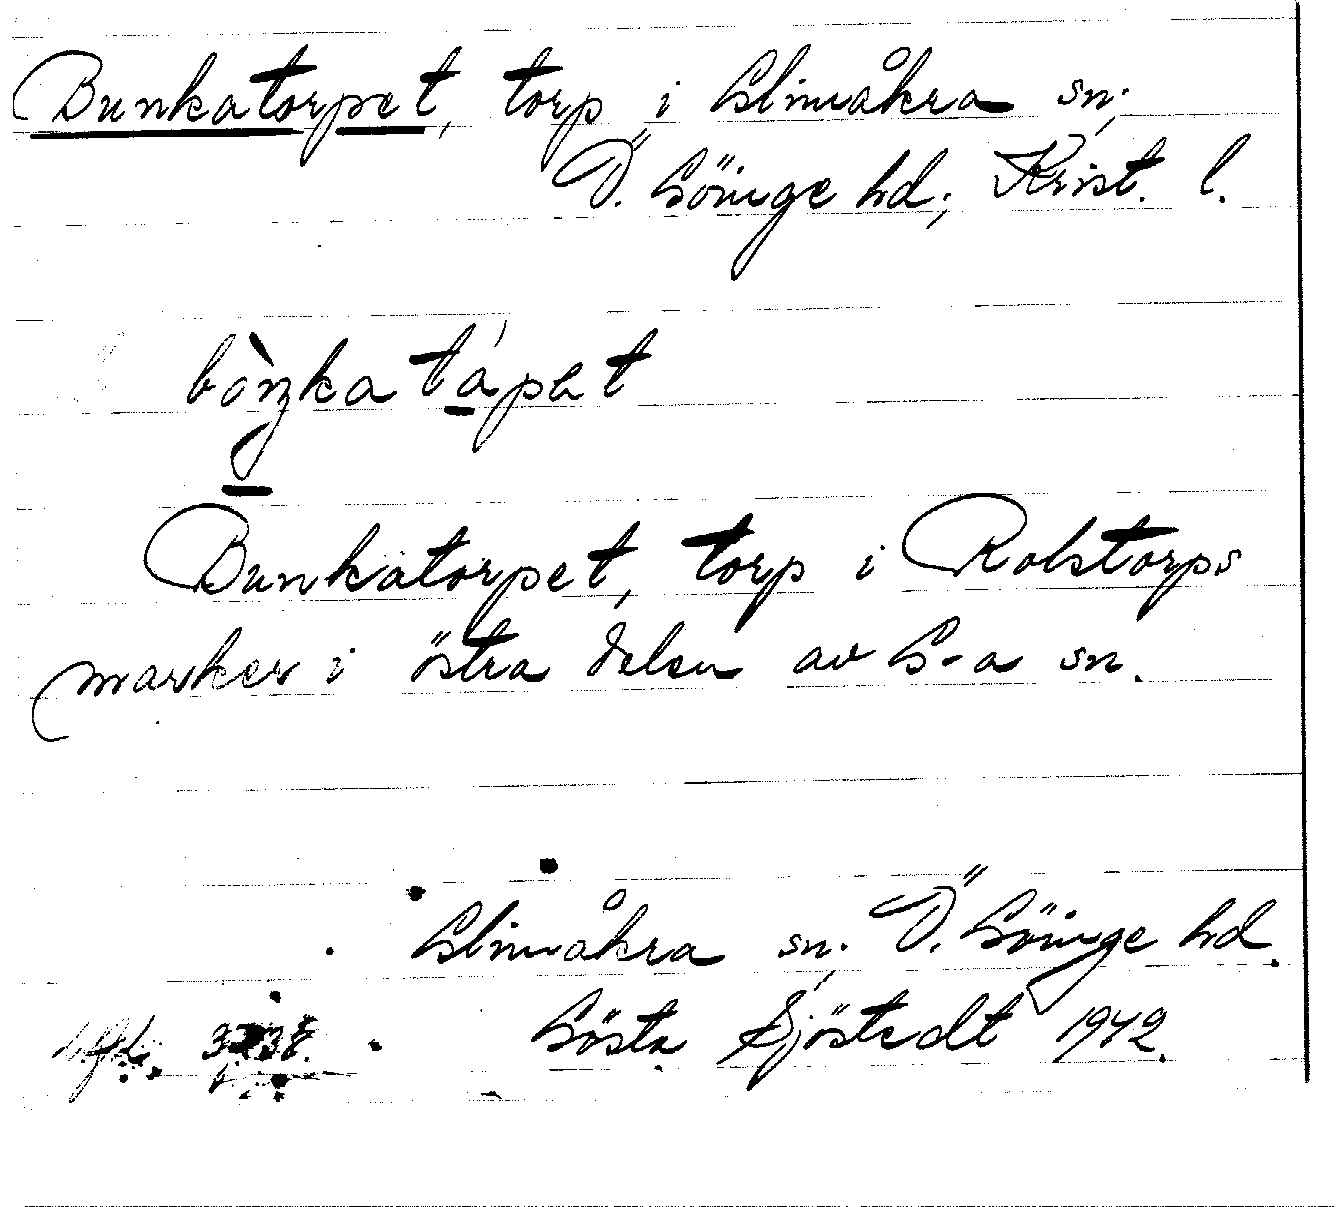 Bunkatorpet, torp i Glimåkra sn;
Ö. Göinge hd; Krist. l.
Bunkatorpet, torp i Rolstorps
marker i östra delen av G-a sn.
Glimåkra sn; Ö. Göinge hd.
Gösta Sjöstedt 1942.